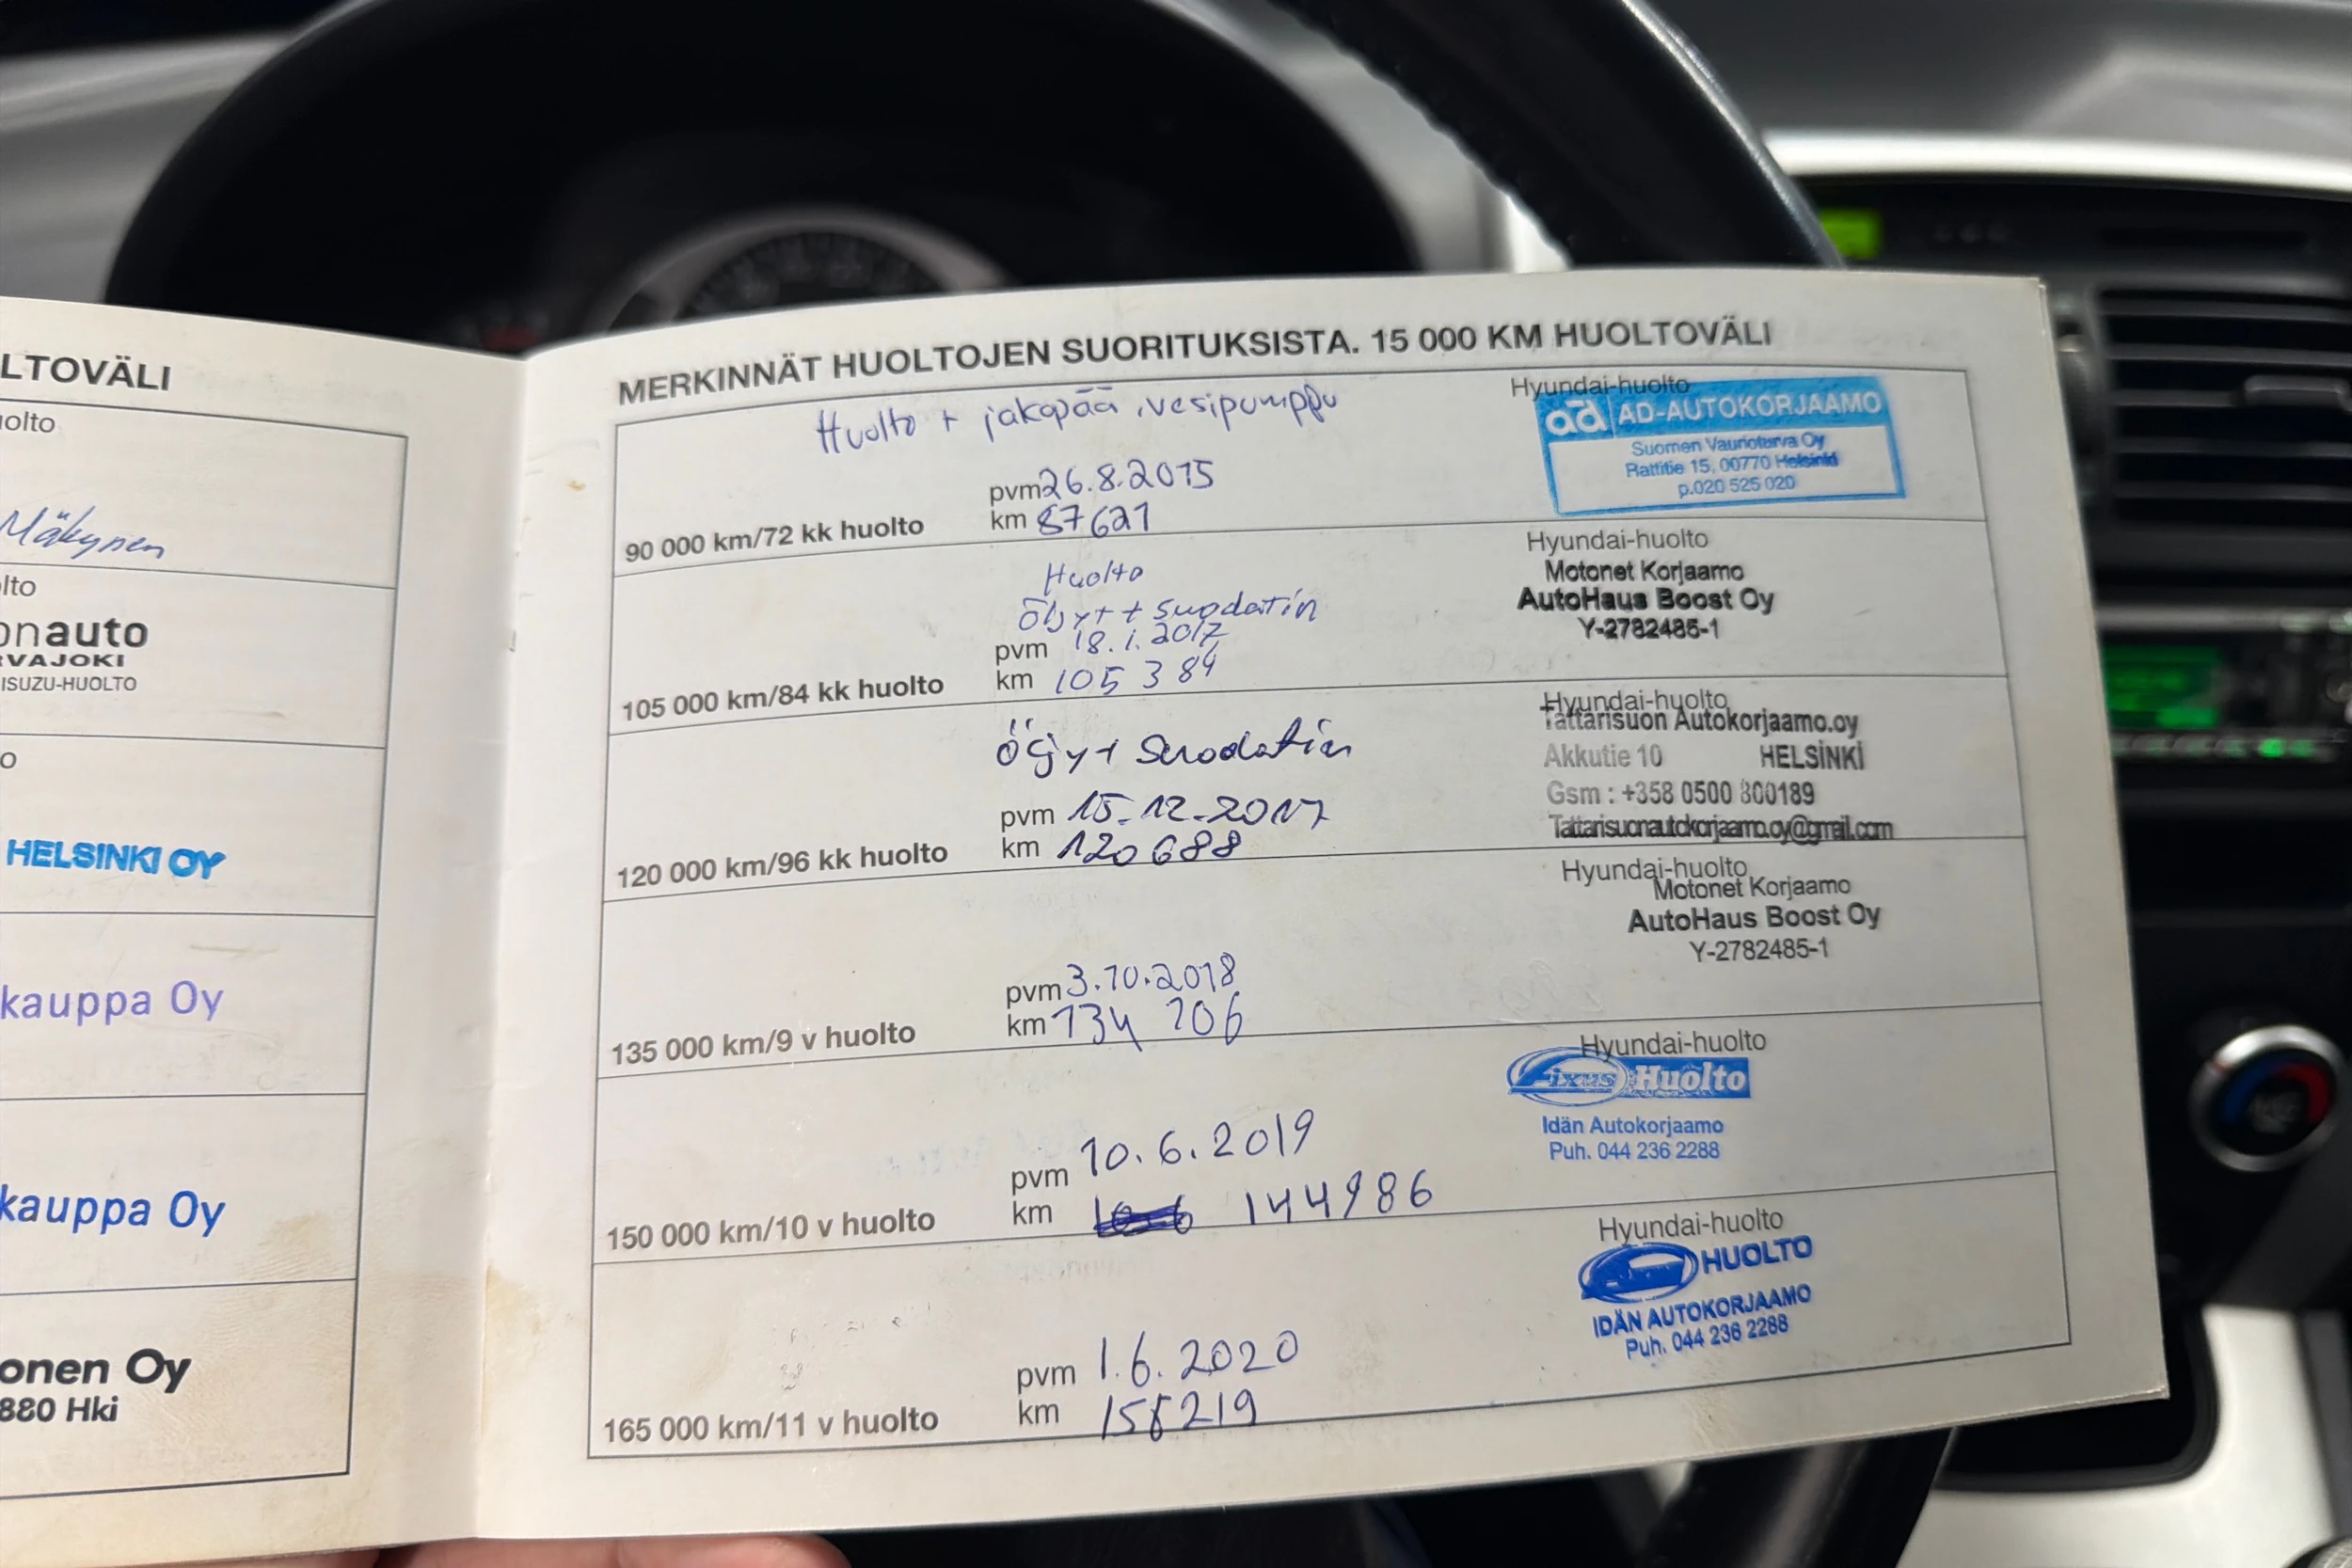 LTOVÄLI
uolto
Mäkynen
olto
onauto
RVAJOKI
ISUZU-HUOLTO
o
HELSINKI OY
kauppa Oy
kauppa Oy
onen Oy
880 Hki
MERKINNÄT HUOLTOJEN SUORITUKSISTA. 15 000 KM HUOLTOVÄLI
Huolto + jakopää, vesipumppu
90 000 km/72 kk huolto
pvm 26.8.2015
km 87621
Hyundai-huolto
ad AD-AUTOKORJAAMO
Suomen Vaurioturva Oy
Rattitie 15, 00770 Helsinki
p.020 525 020
Huolto
Öljyt + suodatin
105 000 km/84 kk huolto
pvm 18.1.2017
km 105 384
Hyundai-huolto
Motonet Korjaamo
AutoHaus Boost Oy
Y-2782485-1
öljyt suodatin
120 000 km/96 kk huolto
pvm 15.12.2017
km 120688
Hyundai-huolto
Tattarisuon Autokorjaamo.oy
Akkutie 10 HELSİNKİ
Gsm : +358 0500 800189
Tattarisuonautokorjaamo.oy@gmail.com
135 000 km/9 v huolto
pvm 3.10.2018
km 134 706
Hyundai-huolto
Motonet Korjaamo
AutoHaus Boost Oy
Y-2782485-1
150 000 km/10 v huolto
pvm 10.6.2019
km 144986
Hyundai-huolto
Fixus Huolto
Idän Autokorjaamo
Puh. 044 236 2288
165 000 km/11 v huolto
pvm 1.6.2020
km 158219
Hyundai-huolto
HUOLTO
IDÄN AUTOKORJAAMO
Puh. 044 236 2288